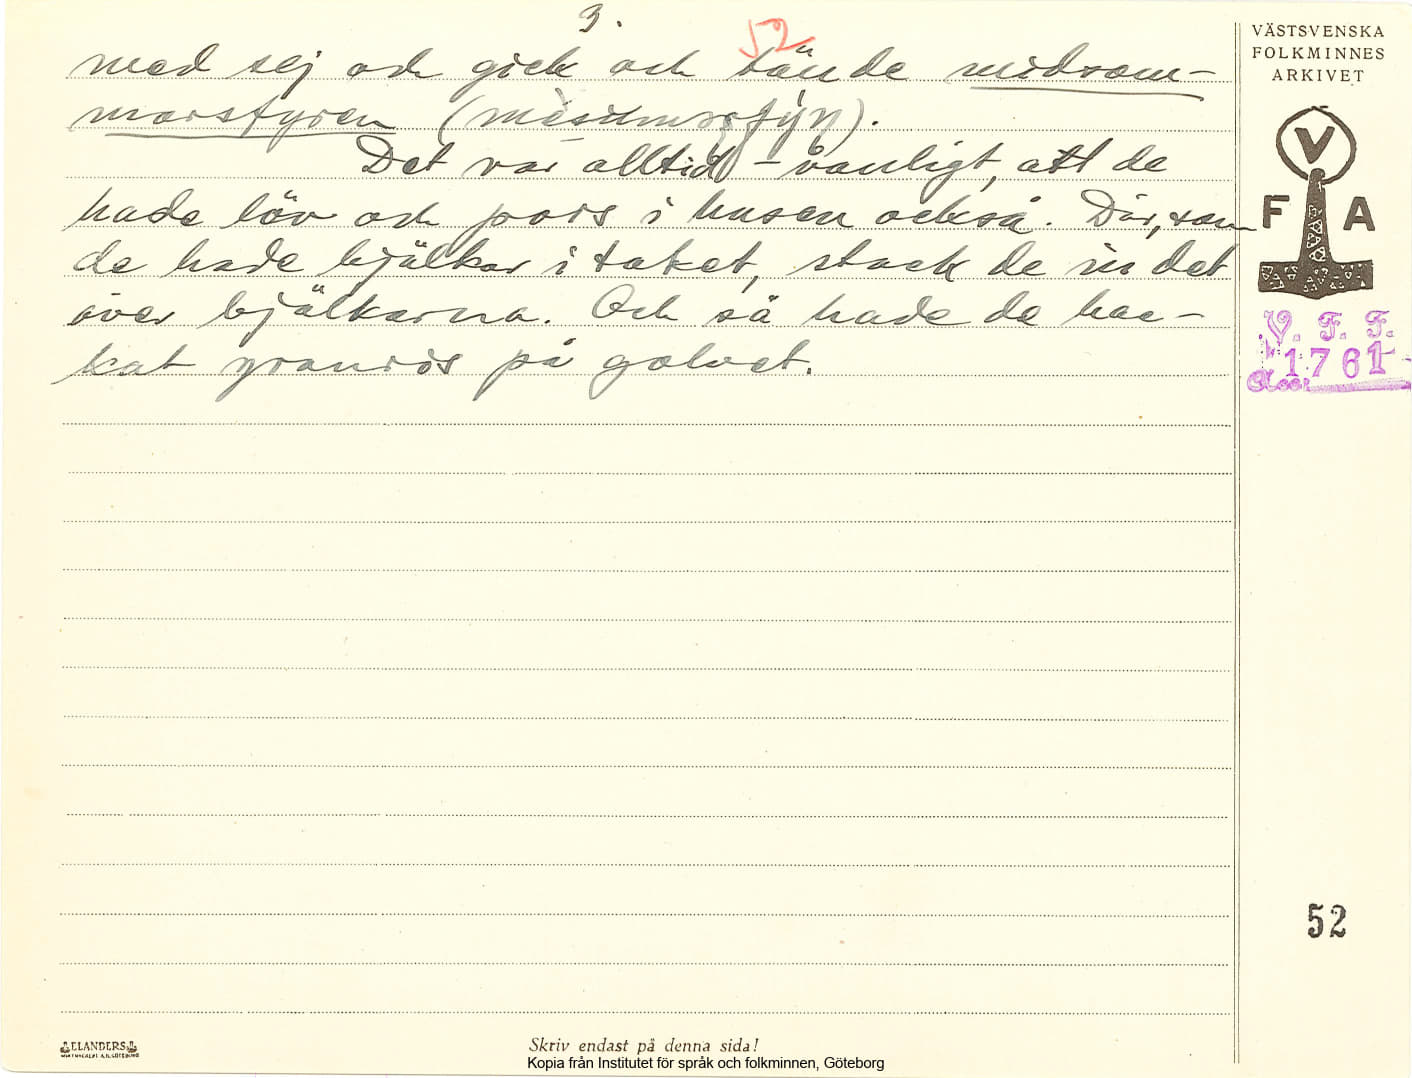 3.
52
med sej och gick och tände midsom-
marsfyren (mèsumœrsfýn).
Det var alltid – vanligt, att de
hade löv och pors i husen också. Där, som
de hade bjälkar i taket, stack de in det
över bjälkarna. Och så hade de hac-
kat granris på golvet.
VÄSTSVENSKA
FOLKMINNES
ARKIVET
V
F A
V. F. F.
1761
Acc.
52
ELANDERS
Skriv endast på denna sida!
Kopia från Institutet för språk och folkminnen, Göteborg